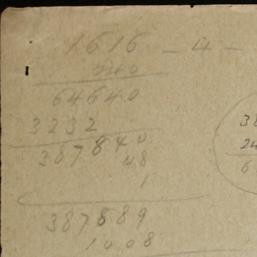 1616 - 4 -
240
64640
3232
387840
48
1
387889
1008
38
24
6